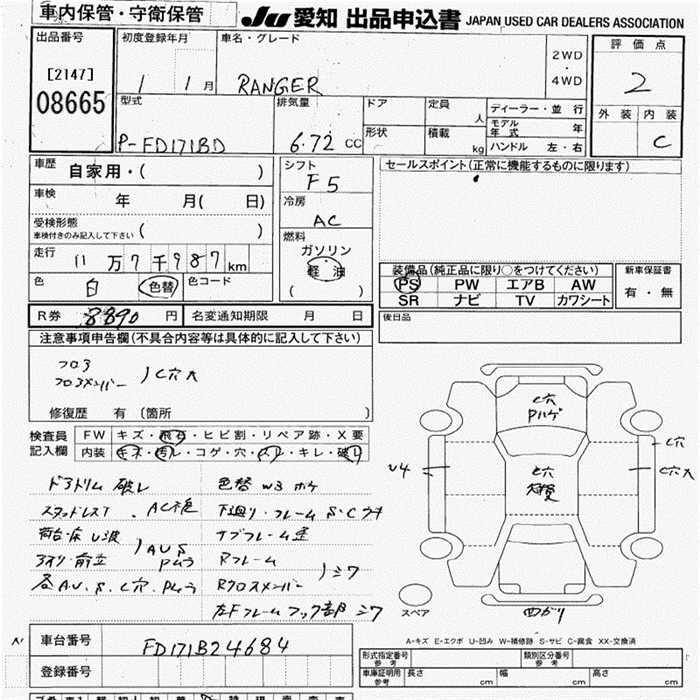 車内保管・守衛保管
JU 愛知 出品申込書 JAPAN USED CAR DEALERS ASSOCIATION
出品番号
[2147]
08665
初度登録年月
1 1月
車名・グレード
RANGER
2WD
・
4WD
評価点
2
外装 内装
C
型式
P-FD171BD
排気量
6.72 CC
ドア
定員
人
形状
積載
kg
ディーラー・並 行
モデル年式 年
ハンドル 左・右
車歴
自家用・( )
車検
年 月( 日)
受検形態
車検付きのみ記入して下さい ( )
走行
11万7千987km
色
白
色替
色コード
シフト
F5
冷房
AC
燃料
ガソリン
軽油
( )
セールスポイント(正常に機能するものに限ります)
装備品(純正品に限り○をつけてください)
PS PW エアB AW
SR ナビ TV カワシート
新車保証書
有・無
後日品
R券 8890 円
名変通知期限 月 日
注意事項申告欄(不具合内容等は具体的に記入して下さい)
フロア
フロアメンバー )C穴大
修復歴 有 (箇所 )
検査員
記入欄
FW キズ・飛石・ヒビ割・リペア跡・X要
内装 キズ・汚レ・コゲ・穴・スレ・キレ・破レ
ドアトリム 破レ
スタッドレスT. AC不良
荷台・床 U波
アオリ・前立
各AU.S.C穴.Pムラ
色替 W3 ボケ
下廻り・フレーム S・C
サブフレーム歪
Rフレーム
Rクロスメンバー )シワ
左Fフレーム フック部 シワ
C穴
Pハゲ
C穴
U4
C穴
C穴大
スペア
A-キズ E-エクボ U-凹み W-補修跡 S-サビ C-腐食 XX-交換済
車台番号
FD171B24684
登録番号
形式指定番号
参考
類別区分番号
参考
車庫証明用
参考
長さ cm
幅 cm
高さ cm